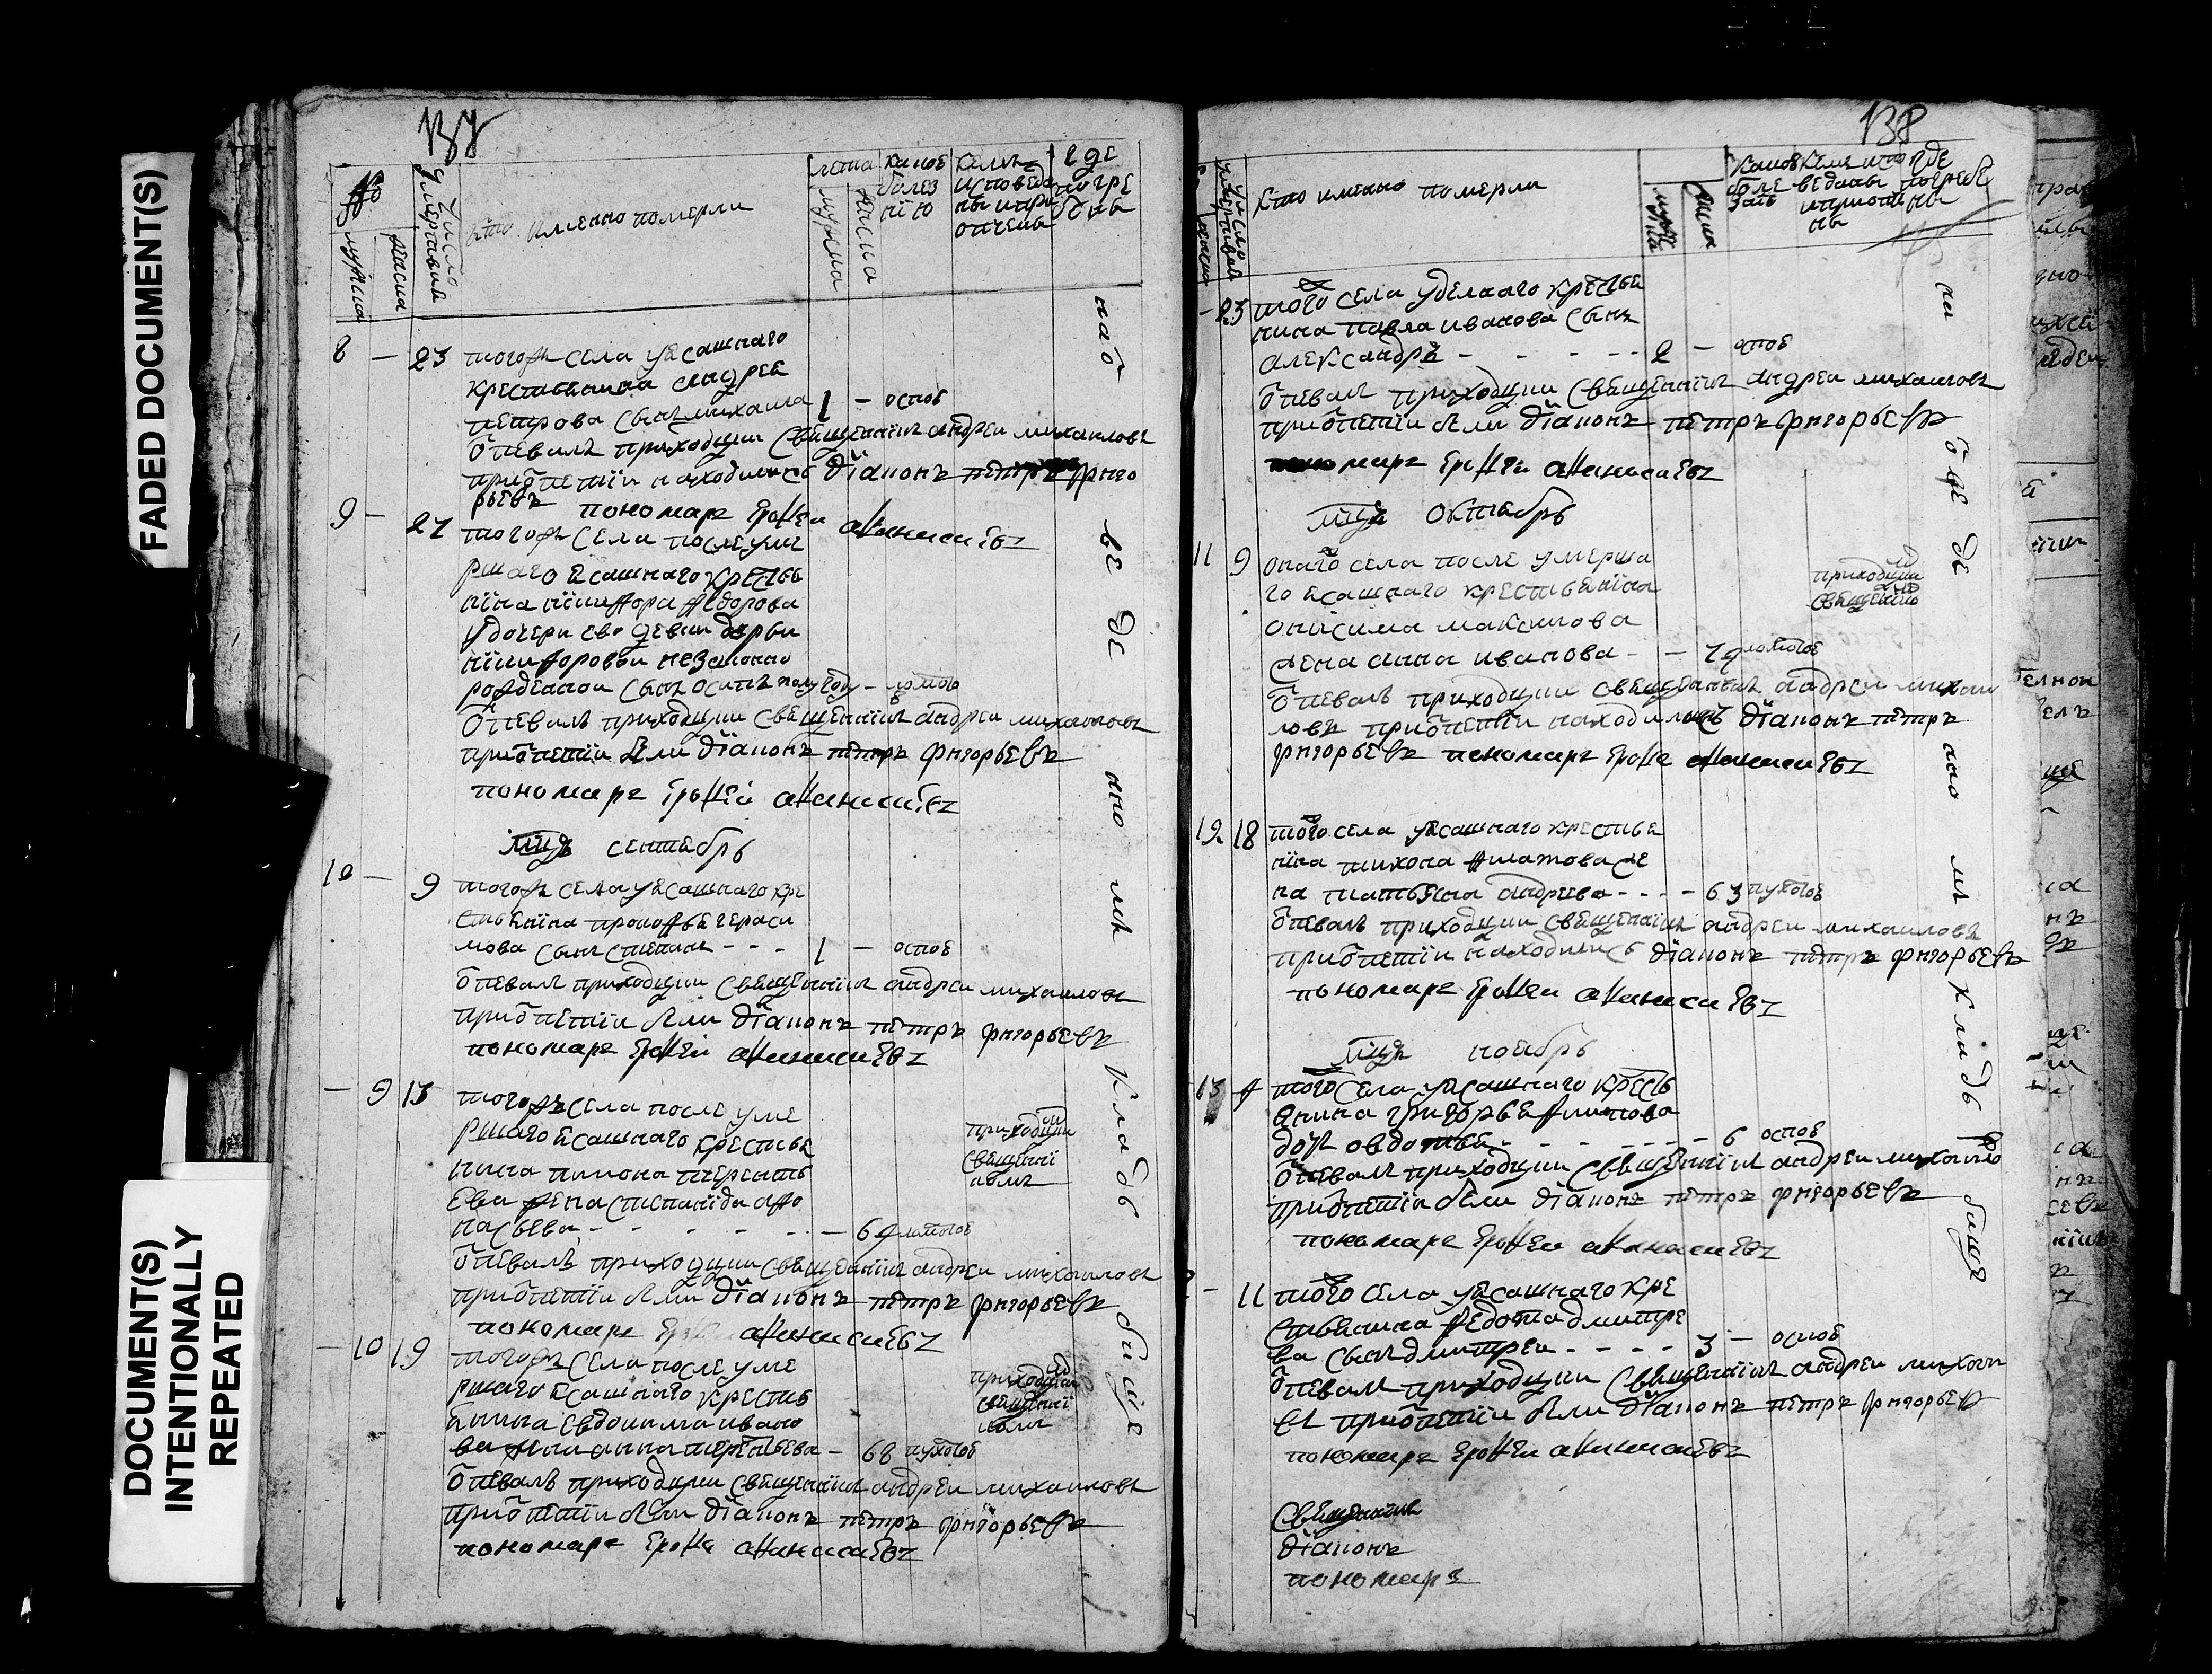 FADED DOCUMENT(S)
DOCUMENT(S)
INTENTIONALLY
REPEATED
137
№
мужска
женска
число
умертвій
кто именно померли
лета
мужска
женска
какою
болез
нїю
кемъ
исповеда
ны и прі
опчены
где
погре
бены
8 — 23 тогожъ села уясашнаго
крестьянина андрея
петрова сынъ михаила 1 — оспою
отпевалъ приходцкии священникъ андреи михаиловъ
приотпетїи находились дїаконъ петръ григо
рьевъ пономарь ерофеи афанасиевъ
9 — 27 тогожъ села после уме
ршаго ясашнаго крестья
нїна никифора федорова
у дочери ево девки дарьи
никифоровои незаконно
рожденной сынъ осипъ полугоду —
отпевалъ приходцкии священникъ андреи михаиловъ
приотпетїи были дїаконъ петръ григорьевъ
пономарь ерофеи афанасиевъ
мцъ сентябрь
10 — 9 тогожъ села уясашнаго кре
стьянїна прокофья гераси
мова сынъ степанъ - - - 1 — оспою
отпевалъ приходцкии священникъ андреи михаиловъ
приотпетїи были дїаконъ петръ григорьевъ
пономарь ерофеи афанасиевъ
— 9 13 тогожъ села после уме
ршаго ясашнаго крестья
нина пимона терентье
ева жена степанїда афо
насьева - - - - - 64
приходцки
священнї
комъ
отпевалъ приходцкии священникъ андреи михаиловъ
приотпетїи были дїаконъ петръ григорьевъ
пономарь ерофеи афанасиевъ
— 10 19 тогожъ села после уме
ршаго ясашнаго кресть
янина евдокима ивано
ва жена анна терентьева — 68
приходцки
священнї
комъ
отпевалъ приходцкии священникъ андреи михаиловъ
приотпетїи были дїаконъ петръ григорьевъ
пономарь ерофеи афанасиевъ
на отведенномъ кладбище
138
число
умертвій
женска
кто имянно померли
мужска
женска
какою
боле
знь
кем испо
веданы
и приоп
ны
где
погребе
ны
- 23 того села уделнаго крестья
нина павла иванова сынъ
александръ - - - - - 2 — оспою
отпевалъ приходцкии священникъ андреи михаиловъ
приотпетїи были дїаконъ петръ григорьевъ
пономарь ерофеи афанасиевъ
мцъ октябрь
11 9 онаго села после умерша
го ясашнаго крестьянїна
онисима максимова
жена анна иванова - — 79
приходцки
священнї
отпевалъ приходцкии священникъ андреи михаи
ловъ приотпетїи находились дїаконъ петръ
григорьевъ пономарь ерофеи афанасиевъ
12 18 того села уясашнаго крестья
нїна тихона филатова же
на татьяна андреева - - - - 63
отпевалъ приходцкии священникъ андреи михаиловъ
приотпетїи находились дїаконъ петръ григорьевъ
пономарь ерофеи афанасиевъ
мцъ ноябрь
13 4 того села уясашнаго кресть
янина григорья филипова
дочь овдотья - - - - - - 6 оспою
отпевалъ приходцкии священникъ андреи михаило
приотпетїи были дїаконъ петръ григорьевъ
пономарь ерофеи афанасиевъ
- 11 того села уясашнаго кре
стьянина федота дмитре
ва сынъ дмитреи - - - - 3 — оспою
отпевалъ приходцкии священникъ андреи михаил
въ приотпетїи были дїаконъ петръ григорьевъ
пономарь ерофеи афанасиевъ
священникъ
дїаконъ
пономарь
на отведенномъ кладбище